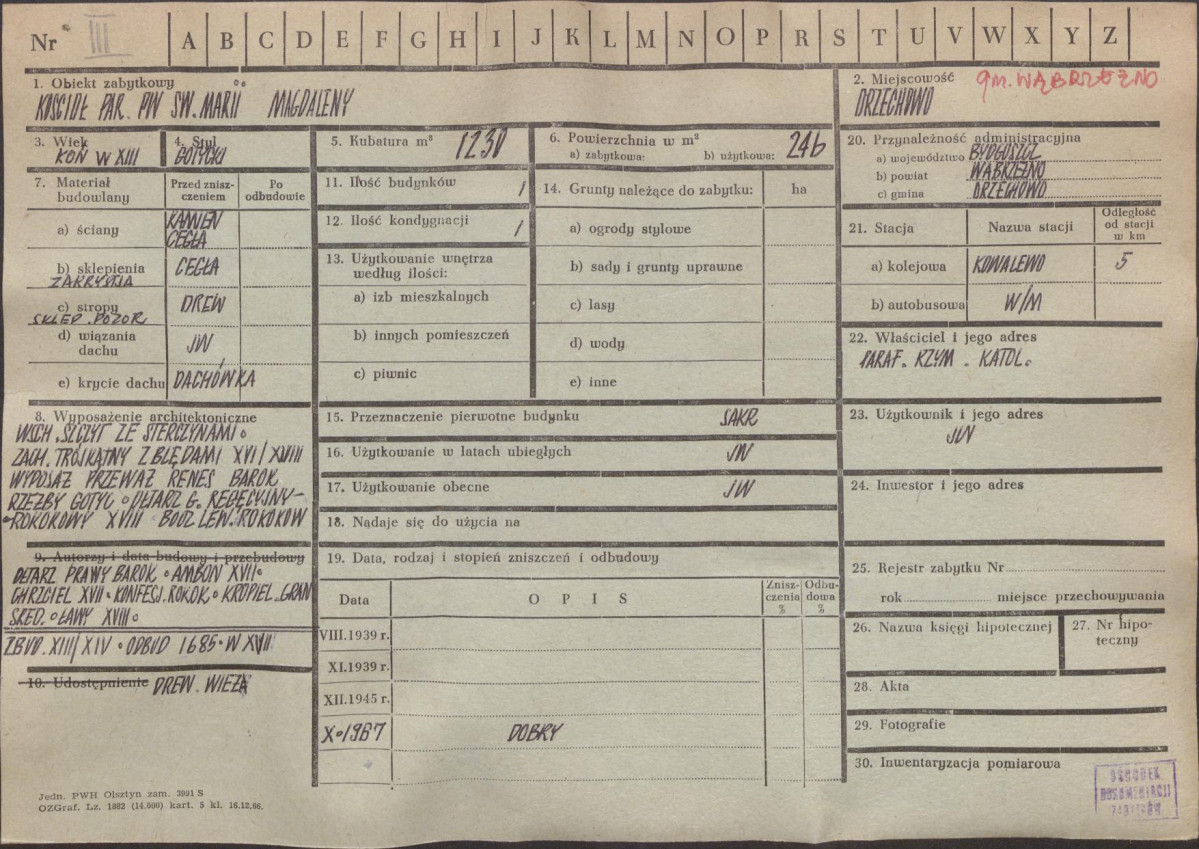 Nr III A B C D E F G H I J K L M N O P R S T U V W X Y Z
1. Obiekt zabytkowy
KOSCIOŁ PAR. PW SW. MARII MAGDALENY
2. Miejscowość gm. WĄBRZEŹNO
ORZECHOWO
3. Wiek
KON W XIII
4. Styl
GOTYCKI
5. Kubatura m³ 1230
6. Powierzchnia w m²
a) zabytkowa: b) użytkowa: 246
7. Materiał budowlany
Przed znisz-
czeniem
Po
odbudowie
a) ściany KAMIEN
CEGŁA
b) sklepienia CEGŁA
ZAKRYSTIA
c) stropy DREW
SKLEP. POZOR
d) wiązania
dachu JW
e) krycie dachu DACHÓWKA
8. Wyposażenie architektoniczne
WSCH. SZCZYT ZE STERCZYNAMI.
ZACH. TRÓJKĄTNY Z BLĘDAMI XVI/XVIII
WYPOSAŻ PRZEWAŻ RENES BAROK
RZEZBY GOTYC. OŁTARZ G. REGĘCYJNY-
-ROKOKOWY XVIII BOCZ LEW. ROKOKOW
9. Autorzy i data budowy i przebudowy
OŁTARZ PRAWY BAROK. AMBON XVII.
CHRZCIEL XVII. KONFESJ. ROKOK. KROPIEL. GRAN
SRED. ŁAWY XVIII.
ZBUD. XIII/XIV. ODBUD 1685. W XVII
10. Udostępnienie DREW. WIEŻA
11. Ilość budynków 1
12. Ilość kondygnacji 1
13. Użytkowanie wnętrza
według ilości:
a) izb mieszkalnych
b) innych pomieszczeń
c) piwnic
14. Grunty należące do zabytku: ha
a) ogrody stylowe
b) sady i grunty uprawne
c) lasy
d) wody
e) inne
15. Przeznaczenie pierwotne budynku SAKR
16. Użytkowanie w latach ubiegłych JW
17. Użytkowanie obecne JW
18. Nadaje się do użycia na
19. Data, rodzaj i stopień zniszczeń i odbudowy
Data OPIS Znisz-
czenia
%
Odbu-
dowa
%
VIII.1939 r.
XI.1939 r.
XII.1945 r.
X.1967 DOBRY
20. Przynależność administracyjna
a) województwo BYDGOSZCZ
b) powiat WĄBRZEŹNO
c) gmina ORZECHOWO
21. Stacja Nazwa stacji Odległość
od stacji
w km
a) kolejowa KOWALEWO 5
b) autobusowa W/M
22. Właściciel i jego adres
PARAF. RZYM. KATOL.
23. Użytkownik i jego adres
JW
24. Inwestor i jego adres
25. Rejestr zabytku Nr
rok miejsce przechowywania
26. Nazwa księgi hipotecznej
27. Nr hipo-
teczny
28. Akta
29. Fotografie
30. Inwentaryzacja pomiarowa
OŚRODEK
DOKUMENTACJI
ZABYTKÓW
Jedn. PWH Olsztyn zam. 3991 S
OZGraf. Lz. 1882 (14.000) kart. 5 kl. 16.12.66.